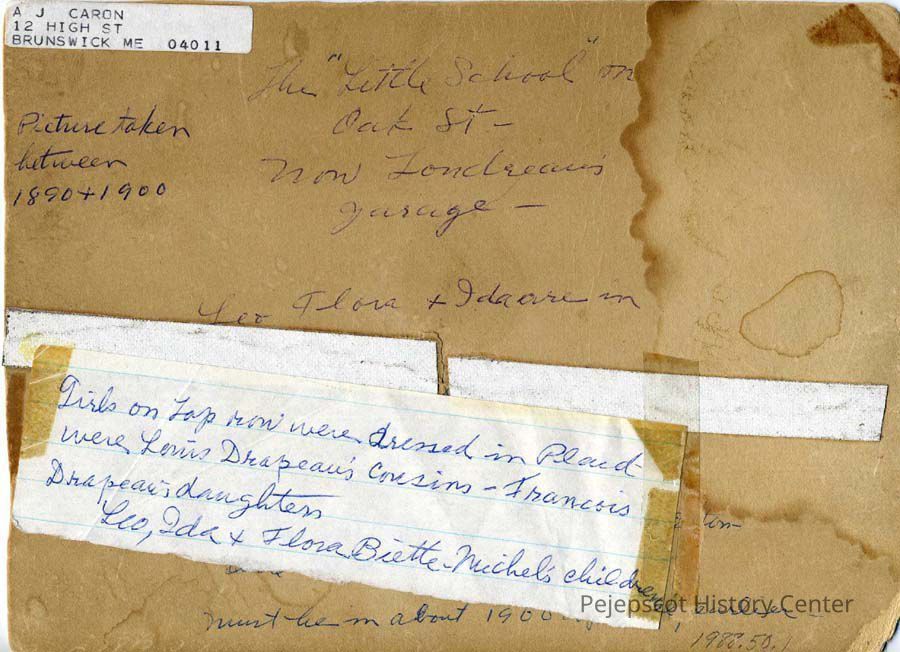 A J CARON
12 HIGH ST
BRUNSWICK ME 04011
The "Little School" on
Oak St -
now Londreau's
garage -
Picture taken
between
1890 + 1900
Leo Flora + Ida are in
Girls on top row were dressed in Plaid
were Louis Drapeau's Cousins - Francois
Drapeau's daughters
Leo, Ida & Flora Biette - Michel's children
must be in about 1900
Pejepscot History Center
1988.50.1